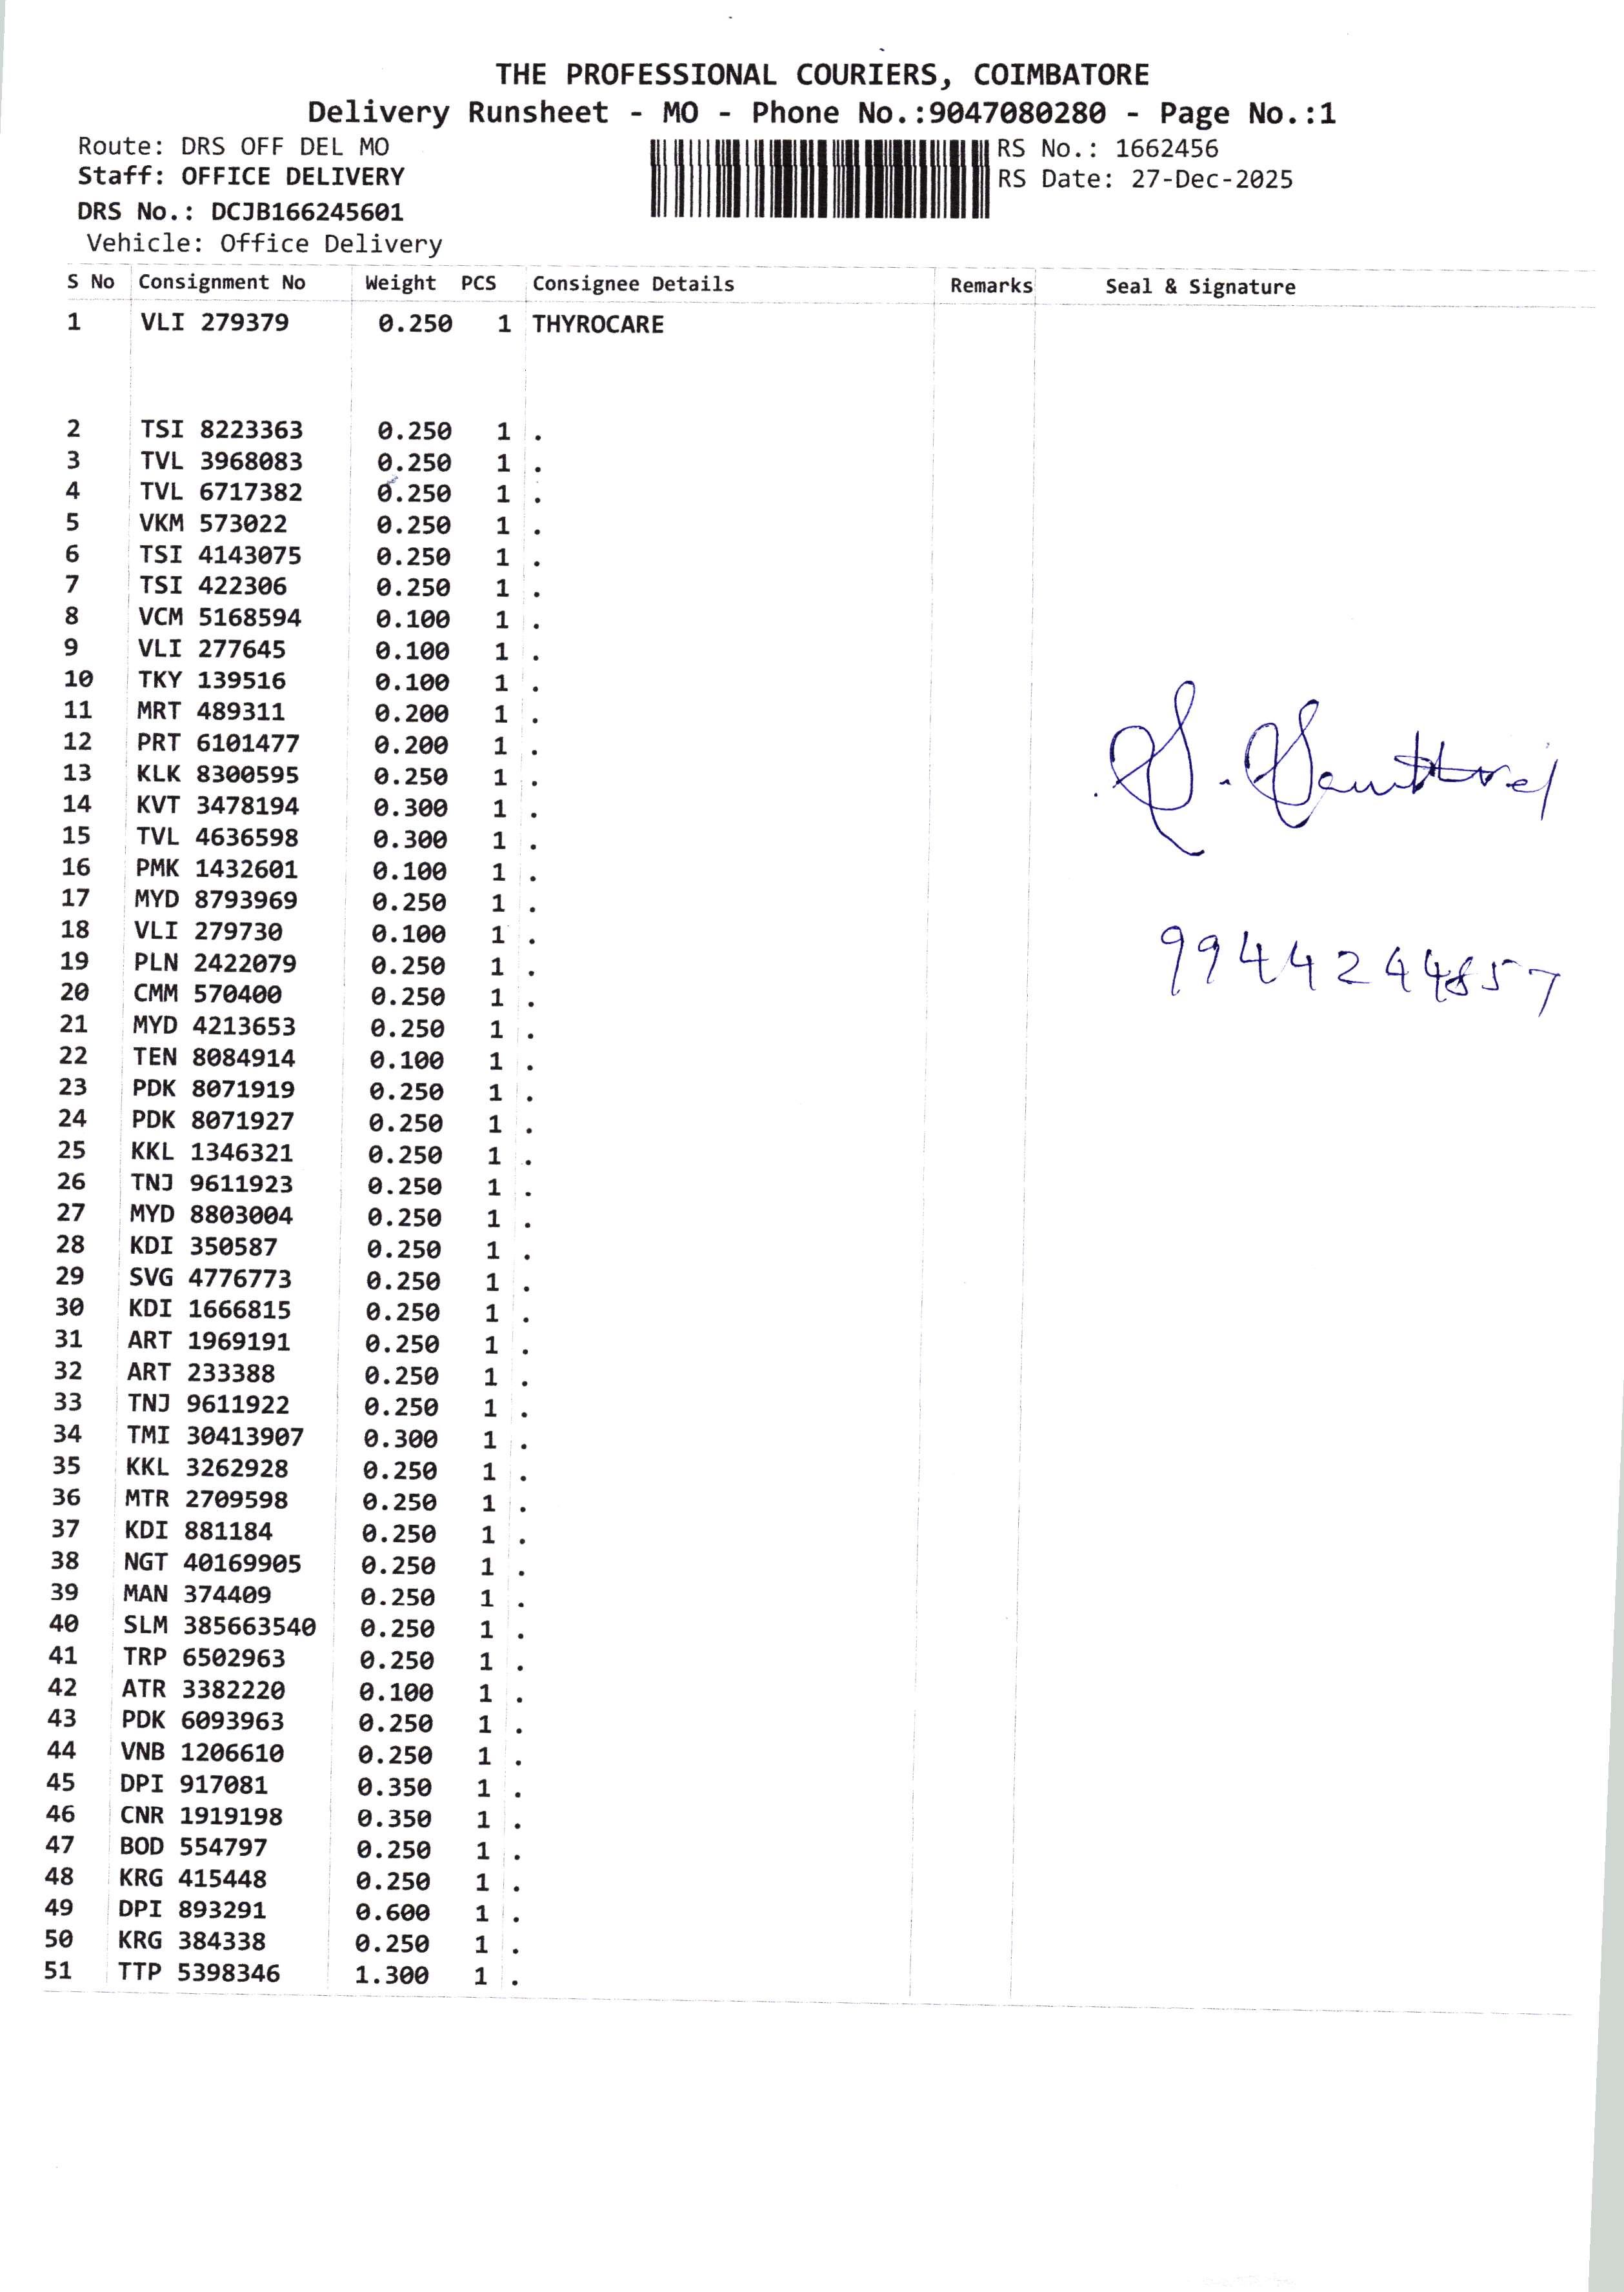 THE PROFESSIONAL COURIERS, COIMBATORE
Delivery Runsheet - MO - Phone No.:9047080280 - Page No.:1
Route: DRS OFF DEL MO
RS No.: 1662456
Staff: OFFICE DELIVERY
RS Date: 27-Dec-2025
DRS No.: DCJB166245601
Vehicle: Office Delivery
S No Consignment No Weight PCS Consignee Details Remarks Seal & Signature
1 VLI 279379 0.250 1 THYROCARE
2 TSI 8223363 0.250 1 .
3 TVL 3968083 0.250 1 .
4 TVL 6717382 0.250 1 .
5 VKM 573022 0.250 1 .
6 TSI 4143075 0.250 1 .
7 TSI 422306 0.250 1 .
8 VCM 5168594 0.100 1 .
9 VLI 277645 0.100 1 .
10 TKY 139516 0.100 1 .
11 MRT 489311 0.200 1 .
12 PRT 6101477 0.200 1 .
13 KLK 8300595 0.250 1 .
14 KVT 3478194 0.300 1 .
15 TVL 4636598 0.300 1 .
16 PMK 1432601 0.100 1 .
17 MYD 8793969 0.250 1 .
18 VLI 279730 0.100 1 .
19 PLN 2422079 0.250 1 .
20 CMM 570400 0.250 1 .
21 MYD 4213653 0.250 1 .
22 TEN 8084914 0.100 1 .
23 PDK 8071919 0.250 1 .
24 PDK 8071927 0.250 1 .
25 KKL 1346321 0.250 1 .
26 TNJ 9611923 0.250 1 .
27 MYD 8803004 0.250 1 .
28 KDI 350587 0.250 1 .
29 SVG 4776773 0.250 1 .
30 KDI 1666815 0.250 1 .
31 ART 1969191 0.250 1 .
32 ART 233388 0.250 1 .
33 TNJ 9611922 0.250 1 .
34 TMI 30413907 0.300 1 .
35 KKL 3262928 0.250 1 .
36 MTR 2709598 0.250 1 .
37 KDI 881184 0.250 1 .
38 NGT 40169905 0.250 1 .
39 MAN 374409 0.250 1 .
40 SLM 385663540 0.250 1 .
41 TRP 6502963 0.250 1 .
42 ATR 3382220 0.100 1 .
43 PDK 6093963 0.250 1 .
44 VNB 1206610 0.250 1 .
45 DPI 917081 0.350 1 .
46 CNR 1919198 0.350 1 .
47 BOD 554797 0.250 1 .
48 KRG 415448 0.250 1 .
49 DPI 893291 0.600 1 .
50 KRG 384338 0.250 1 .
51 TTP 5398346 1.300 1 .